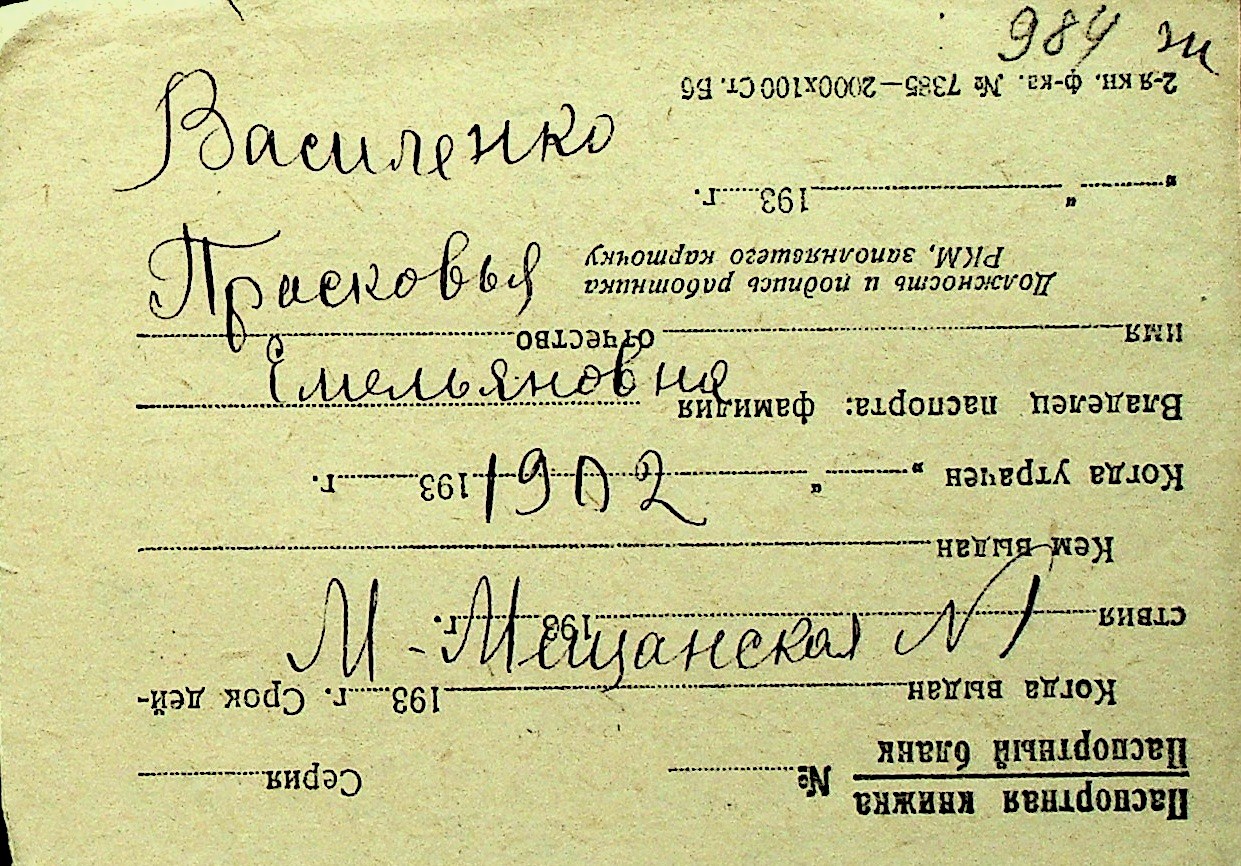 984 ж
Василенко
Прасковья
Емельяновна
1902
М-Мещанская N1
Паспортная книжка
Паспортный бланк
№ Серия
Когда выдан 193 г. Срок дей-
ствия 193 г.
Кем выдан
Когда утрачен „ “ 193 г.
Владелец паспорта: фамилия
имя отчество
Должность и подпись работника
РКМ, заполняетего карточку
„ “ 193 г.
2-я кн. ф-ка. № 7385—2000х100 Ст. Б6